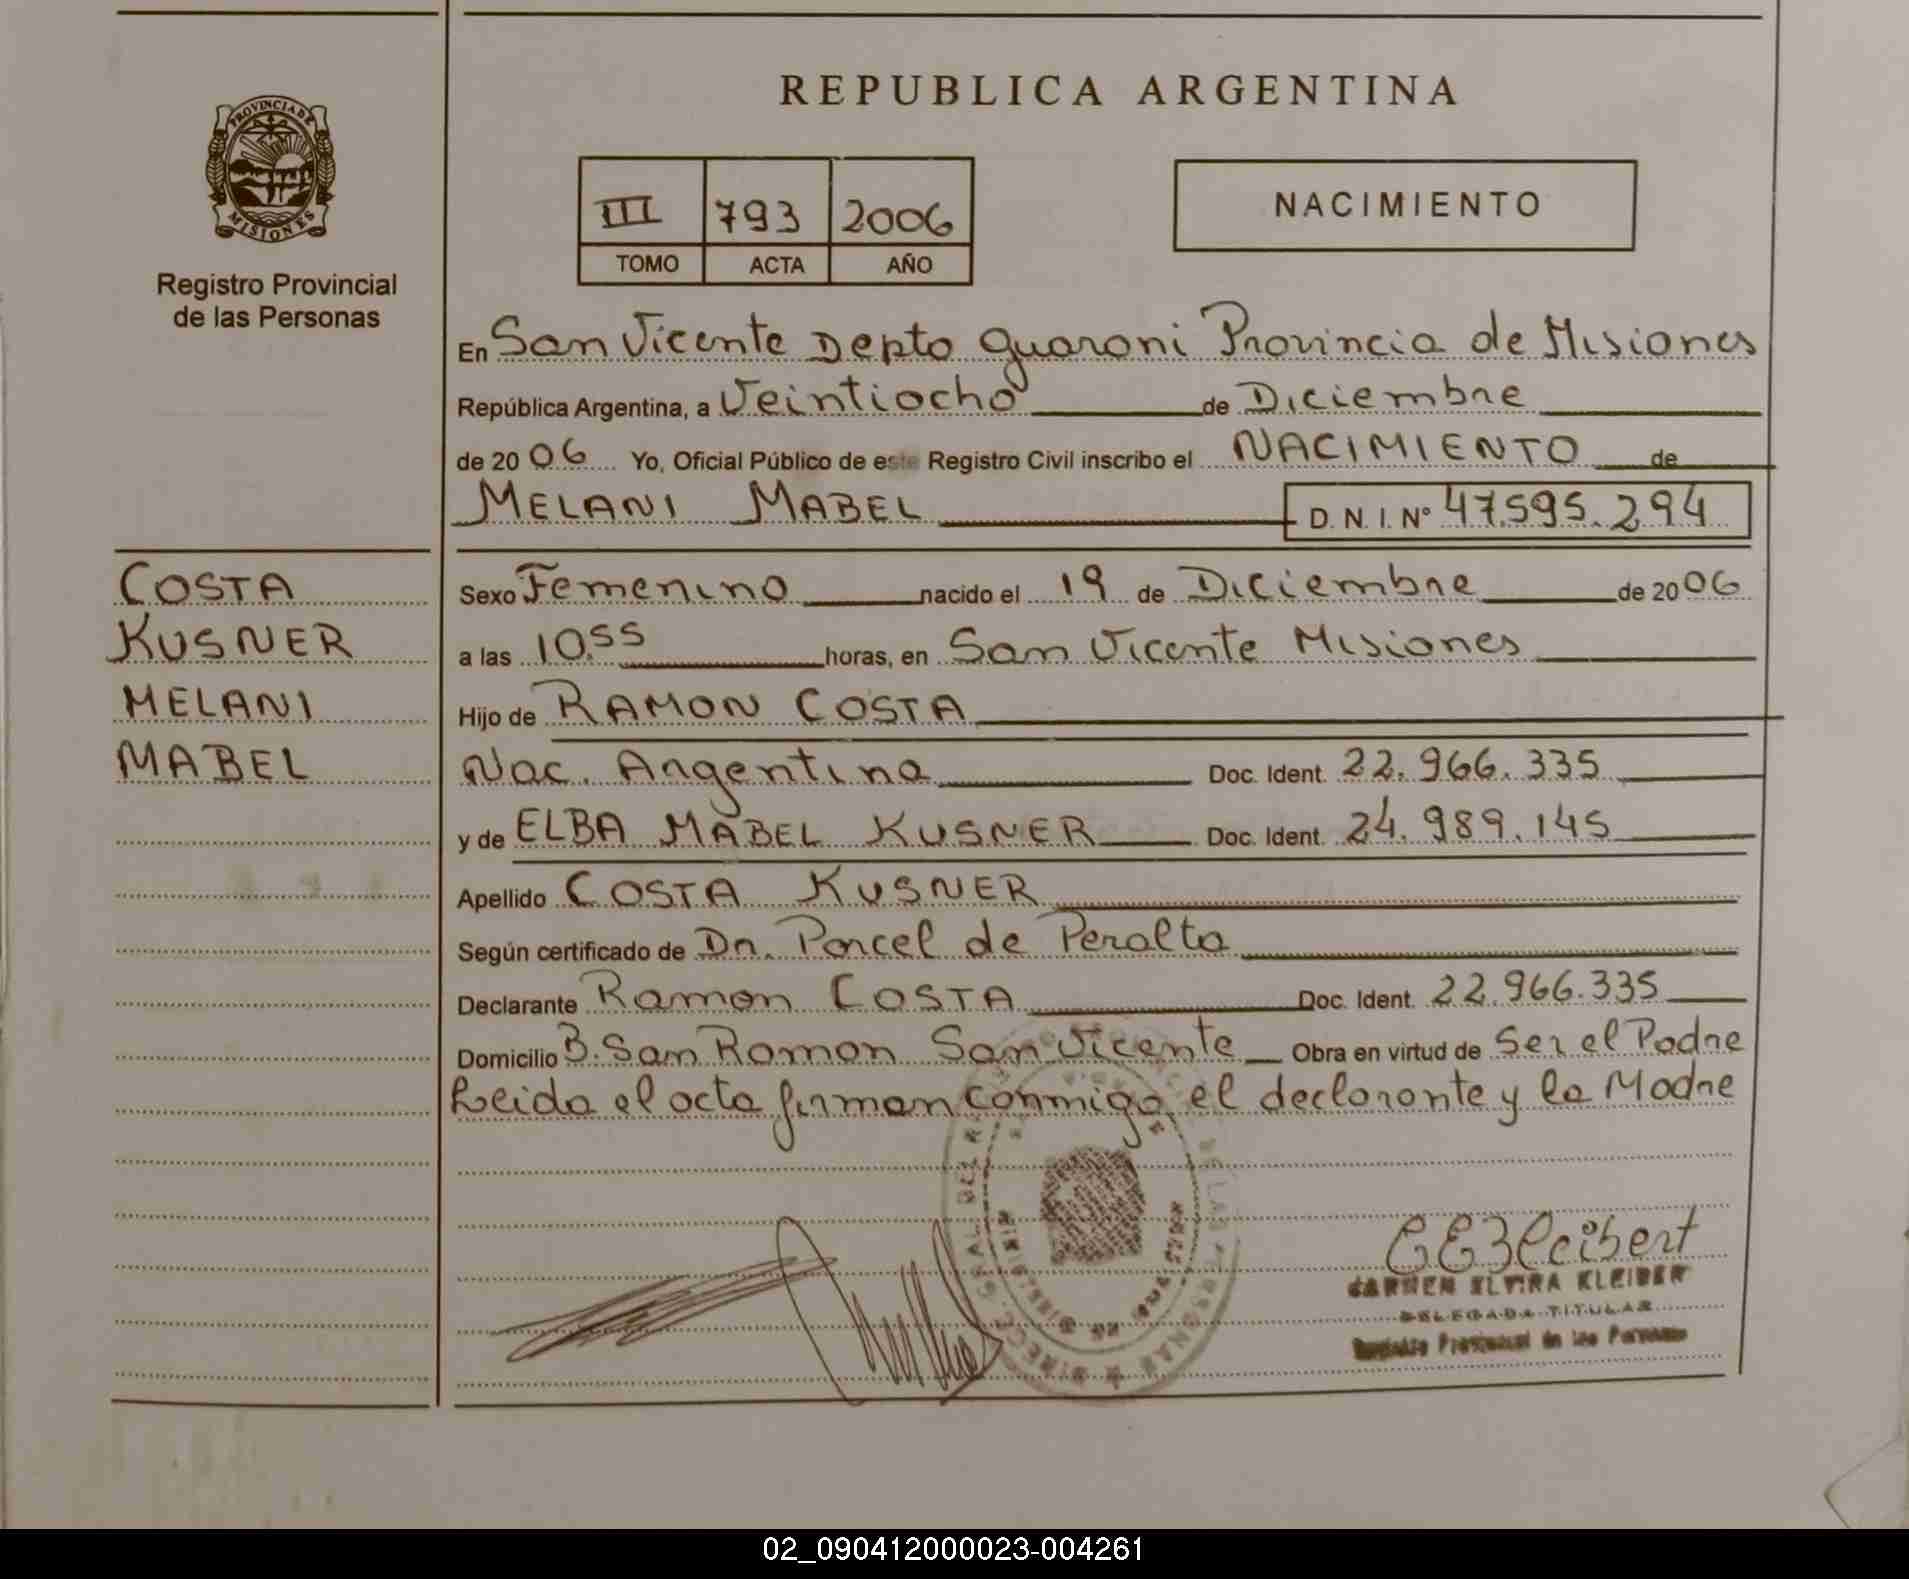 REPUBLICA ARGENTINA
PROVINCIA DE
MISIONES
Registro Provincial
de las Personas
III 793 2006
TOMO ACTA AÑO
NACIMIENTO
En San Vicente Depto Guarani Provincia de Misiones
República Argentina, a Veintiocho de Diciembre
de 2006 Yo, Oficial Público de este Registro Civil inscribo el NACIMIENTO de
MELANI MABEL D.N.I. Nº 47.595.294
COSTA
KUSNER
MELANI
MABEL
Sexo Femenino nacido el 19 de Diciembre de 2006
a las 10.55 horas, en San Vicente Misiones
Hijo de RAMON COSTA
Nac. Argentina Doc. Ident. 22.966.335
y de ELBA MABEL KUSNER Doc. Ident. 24.989.145
Apellido COSTA KUSNER
Según certificado de Dr. Porcel de Peralta
Declarante Ramon COSTA Doc. Ident. 22.966.335
Domicilio B. San Ramon San Vicente Obra en virtud de Ser el Padre
Leida el acta firman conmigo el declarante y la Madre
CARMEN ELVIRA KLEIBER
DELEGADA TITULAR
Registro Provincial de las Personas
02_090412000023-004261